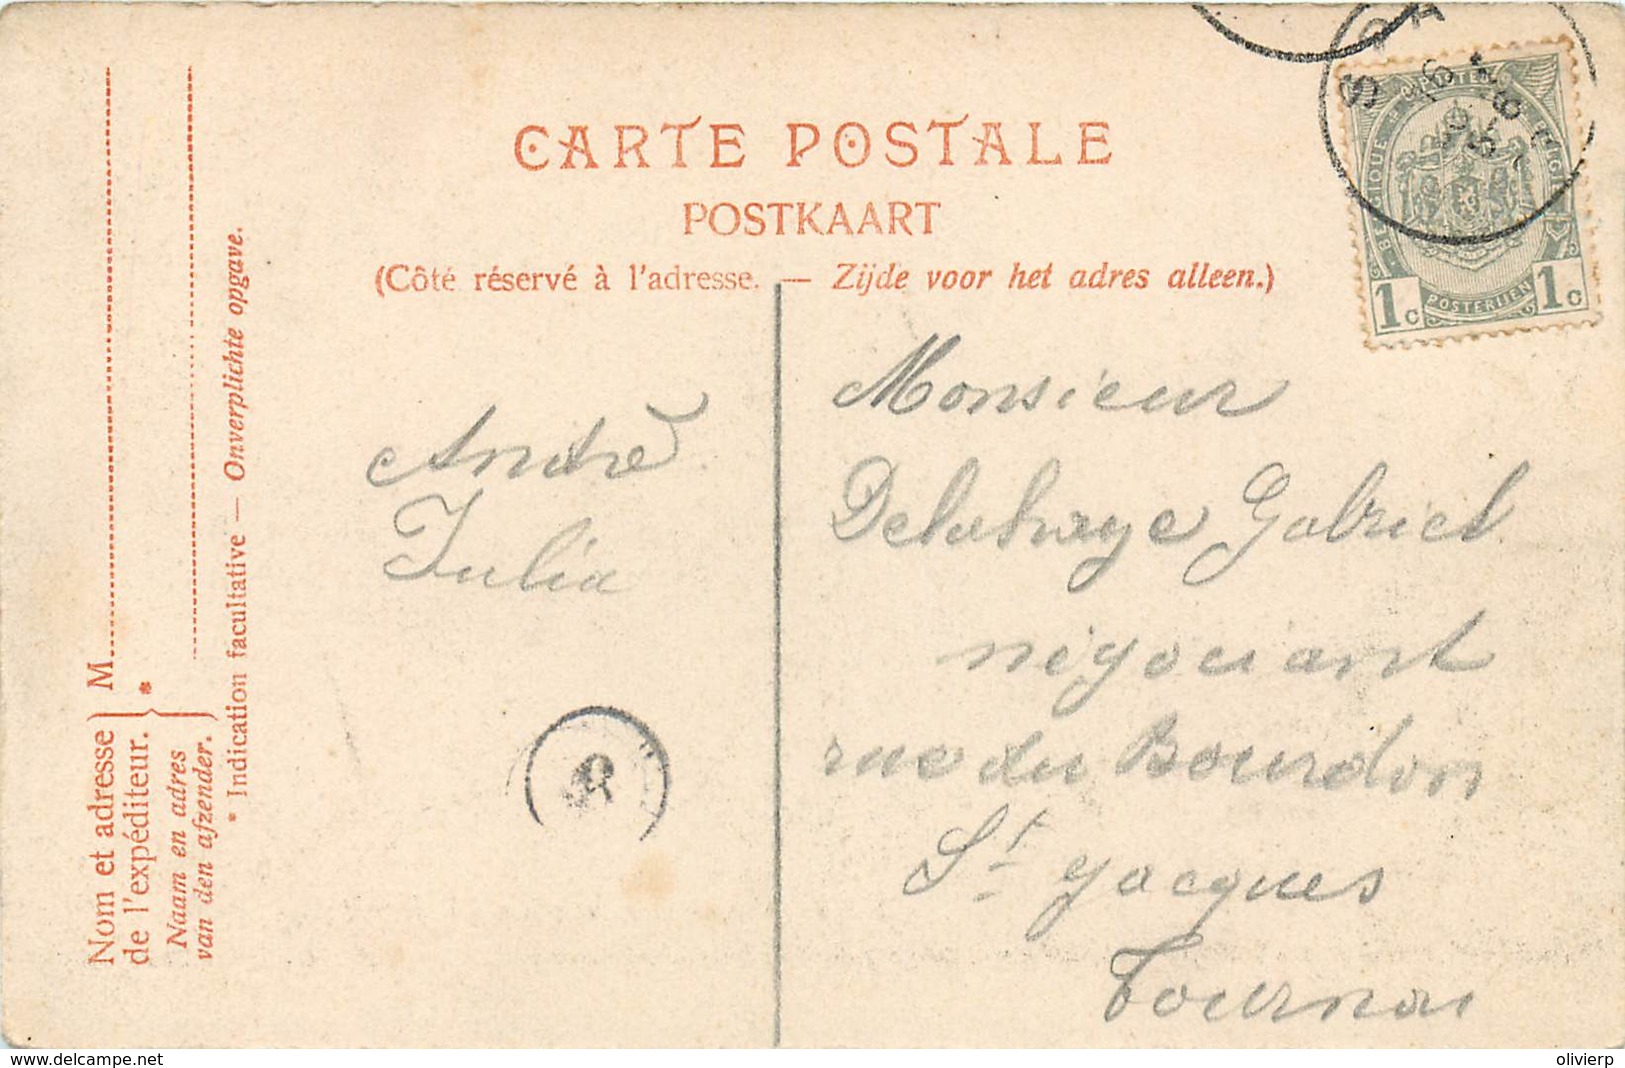 CARTE POSTALE
POSTKAART
(Côté réservé à l'adresse. — Zijde voor het adres alleen.)
M
Nom et adresse
de l'expéditeur.
*
Naam en adres
van den afzender.
* Indication facultative — Onverplichte opgave.
POSTES
BELGIQUE
BELGIË
1c POSTERIJEN 1c
André
Julia
Monsieur
Delahaye Gabriel
négociant
rue du Bourdon
St Jacques
Tournai
www.delcampe.net
olivierp